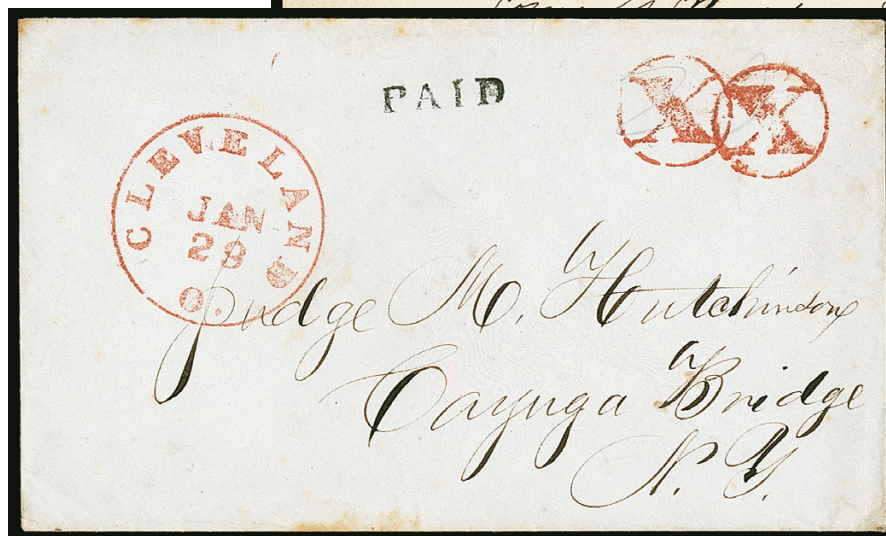 PAID
X X
CLEVELAND
JAN
29
O.
Judge M. Hutchinson
Cayuga Bridge
N. Y.